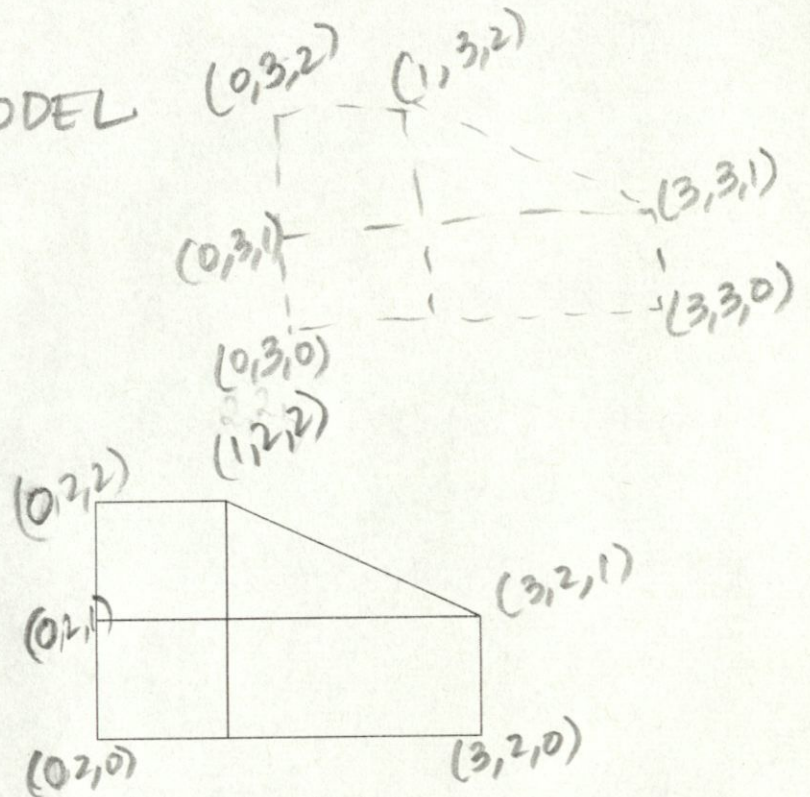 (0,3,2) (1,3,2)
ODEL
(3,3,1)
(0,3,1)
(3,3,0)
(0,3,0)
(1,2,2)
(0,2,2)
(3,2,1)
(0,2,1)
(0 2,0) (3,2,0)